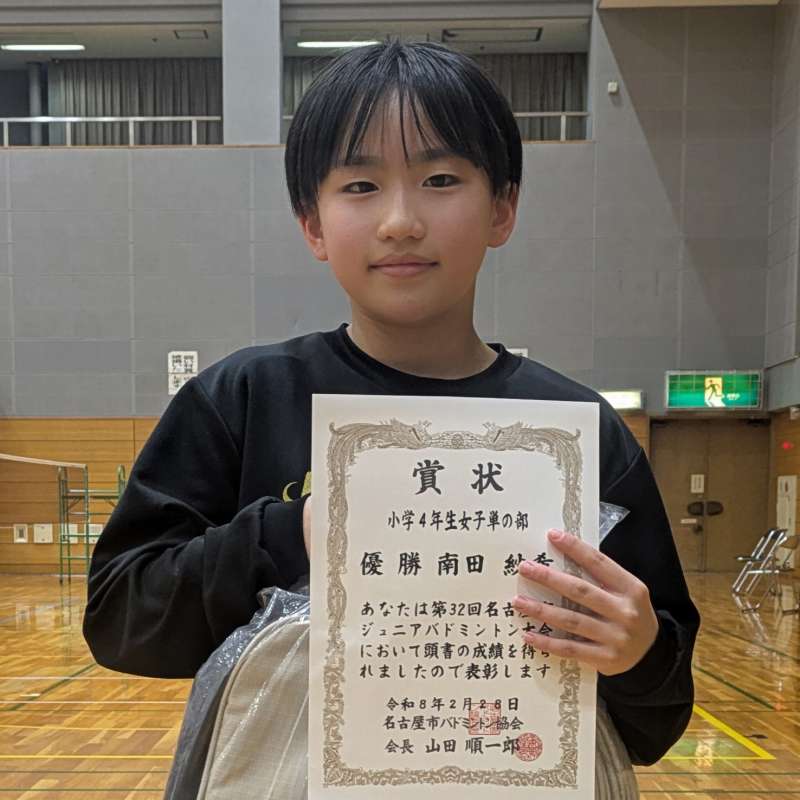 賞状
小学4年生女子単の部
優勝 南田 紗希
あなたは第32回名古屋
ジュニアバドミントン大会
において頭書の成績を得ら
れましたので表彰します
令和8年2月28日
名古屋市バドミントン協会
会長 山田 順一郎